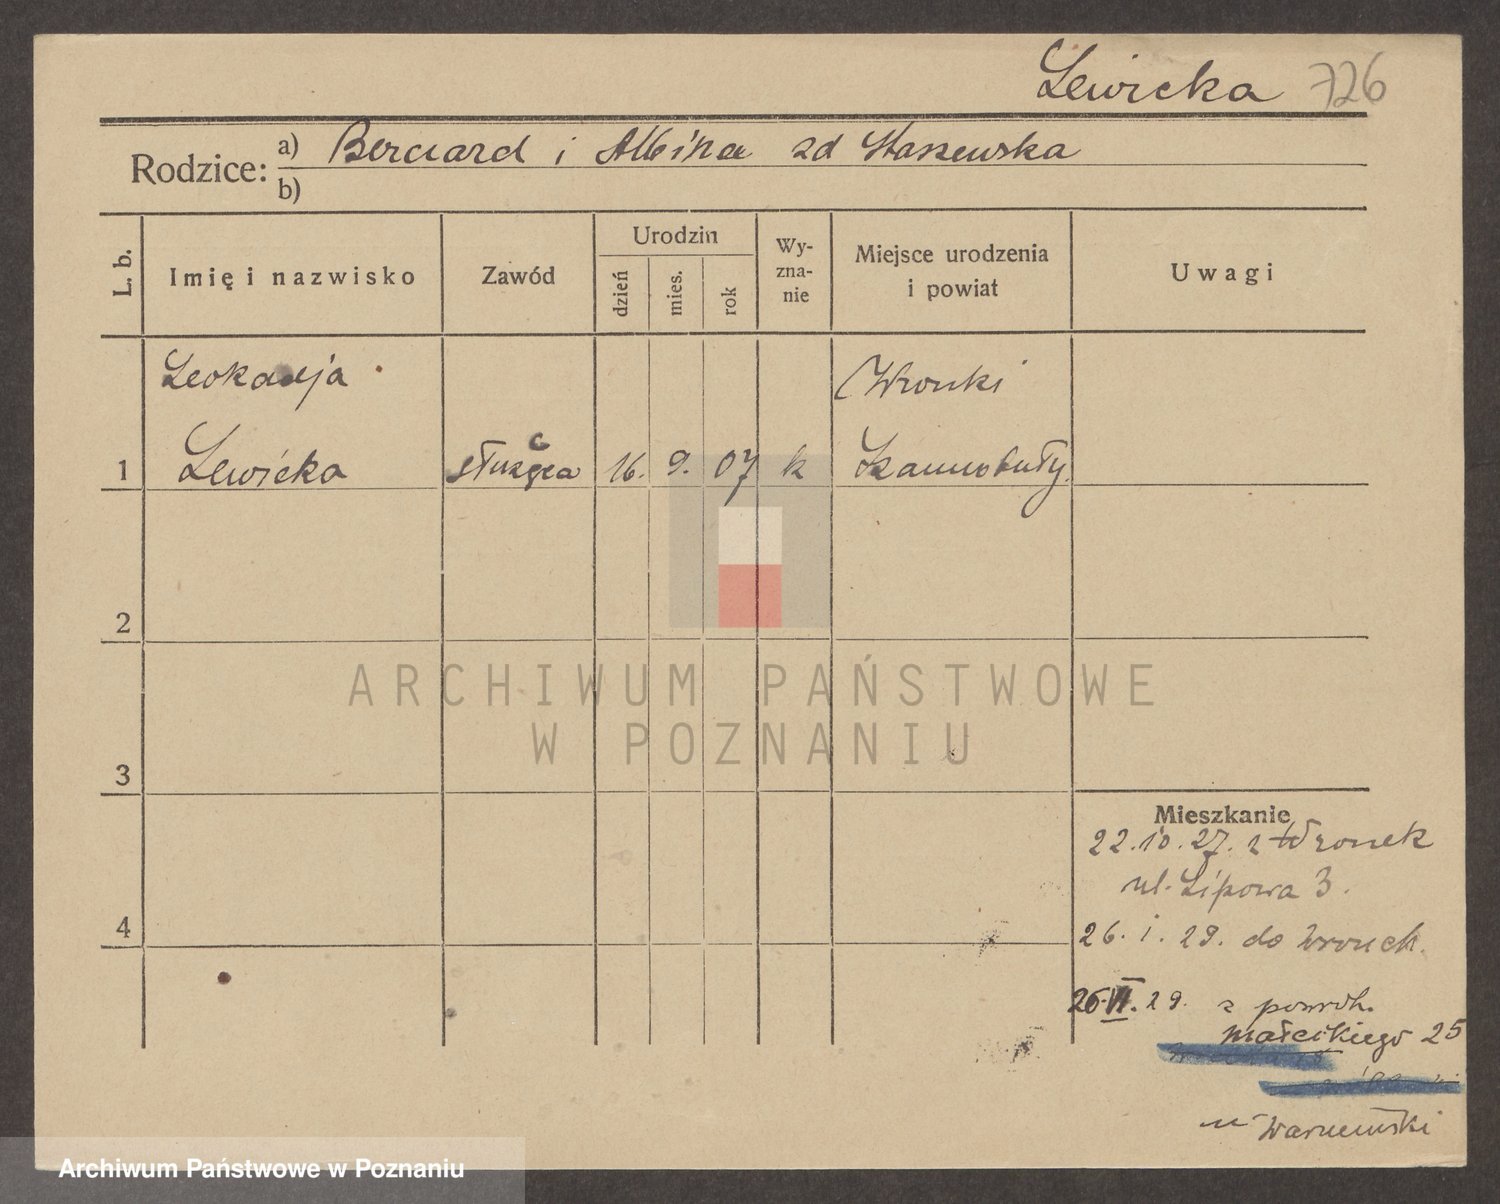 Lewicka 726
Rodzice: a) Bernard i Albina zd Staszewska
b)
L. b.
Imię i nazwisko
Zawód
Urodzin
dzień
mies.
rok
Wy-
zna-
nie
Miejsce urodzenia
i powiat
Uwagi
Leokadja
Wronki
1 Lewicka służąca 16. 9. 07 k Szamotuły.
2
3
4
ARCHIWUM PAŃSTWOWE
W POZNANIU
Mieszkanie
22.10.27. z Wronek
ul. Lipowa 3.
26. 1. 29. do Wronek.
26. VI. 29. z powroh.
Małeckiego 25
Archiwum Państwowe w Poznaniu